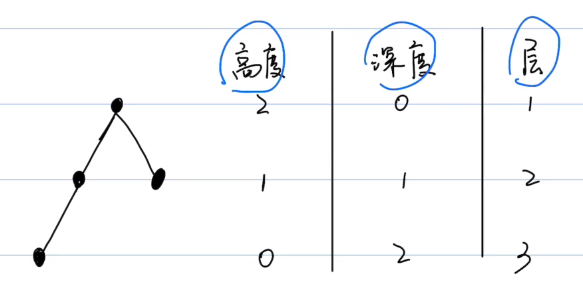 高度 深度 层
2 0 1
1 1 2
0 2 3